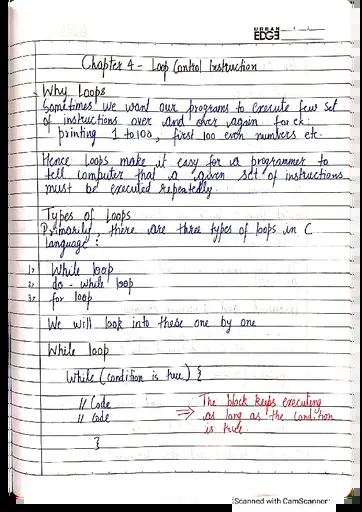 URBAN
EDGE
Chapter 4 - Loop Control Instruction
Why Loops
Sometimes we want our programs to execute few set
of instructions over and over again for ex:
printing 1 to 100, first 100 even numbers etc.
Hence Loops make it easy for a programmer to
tell computer that a given set of instructions
must be executed repeatedly.
Types of Loops
Primarily, there are three types of loops in C
language:
1> While loop
2> do - while loop
3> for loop
We will look into these one by one
While loop
While (condition is true) {
// Code
// Code
}
⇒ The block keeps executing
as long as the condition
is true
Scanned with CamScanner